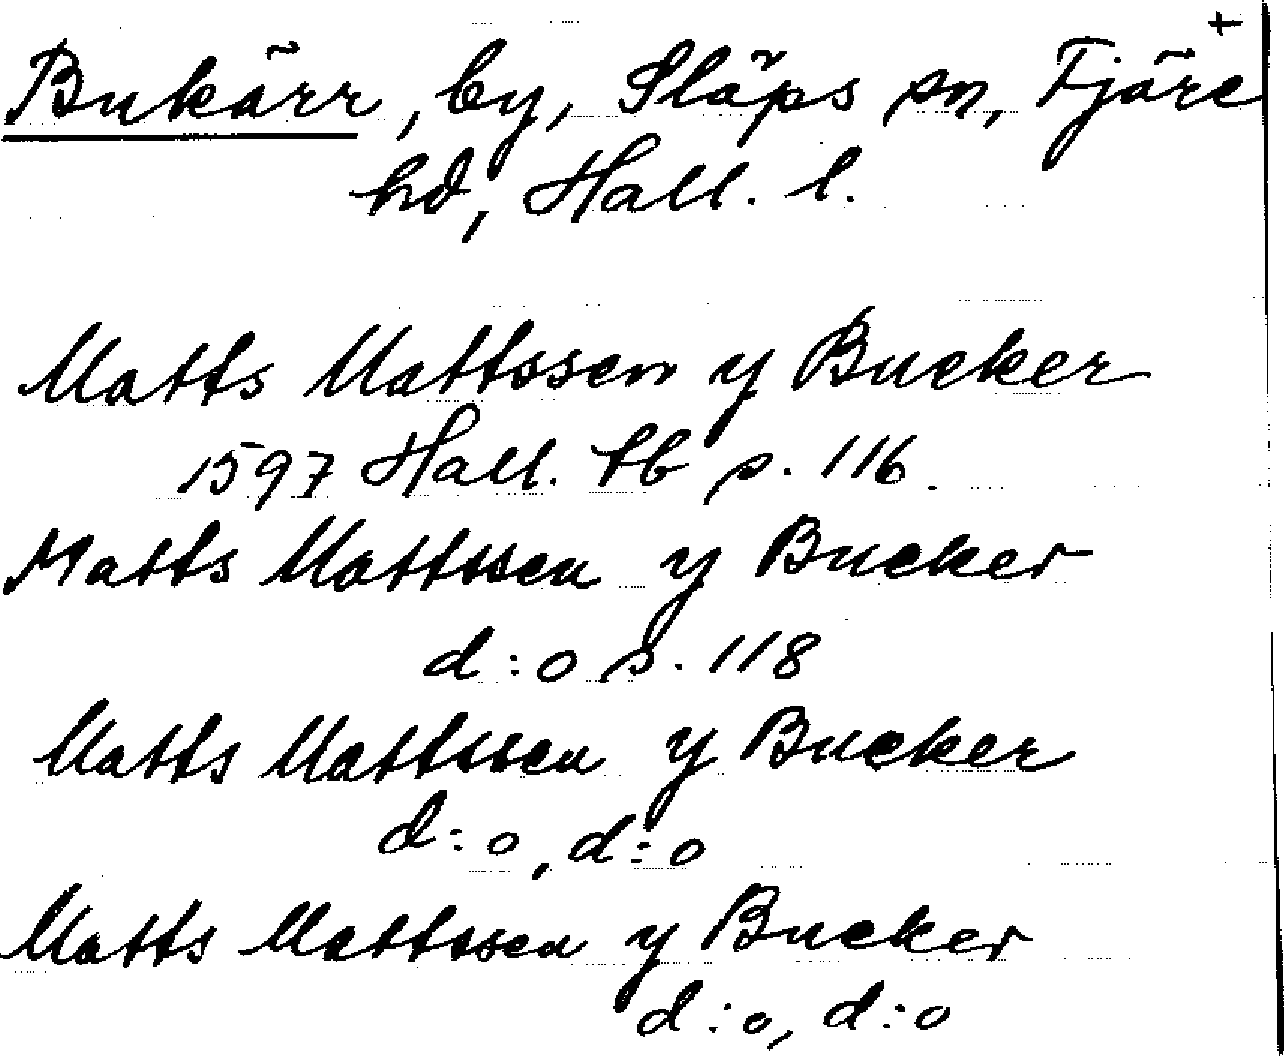 +
Bukärr, by, Släps sn, Fjäre
hd, Hall. l.
Matts Mattssen y Bucker
1597 Hall. tb s. 116.
Matts Mattssen y Bucker
d:o s. 118
Matts Mattssen y Bucker
d:o, d:o
Matts Mattssen y Bucker
d:o, d:o